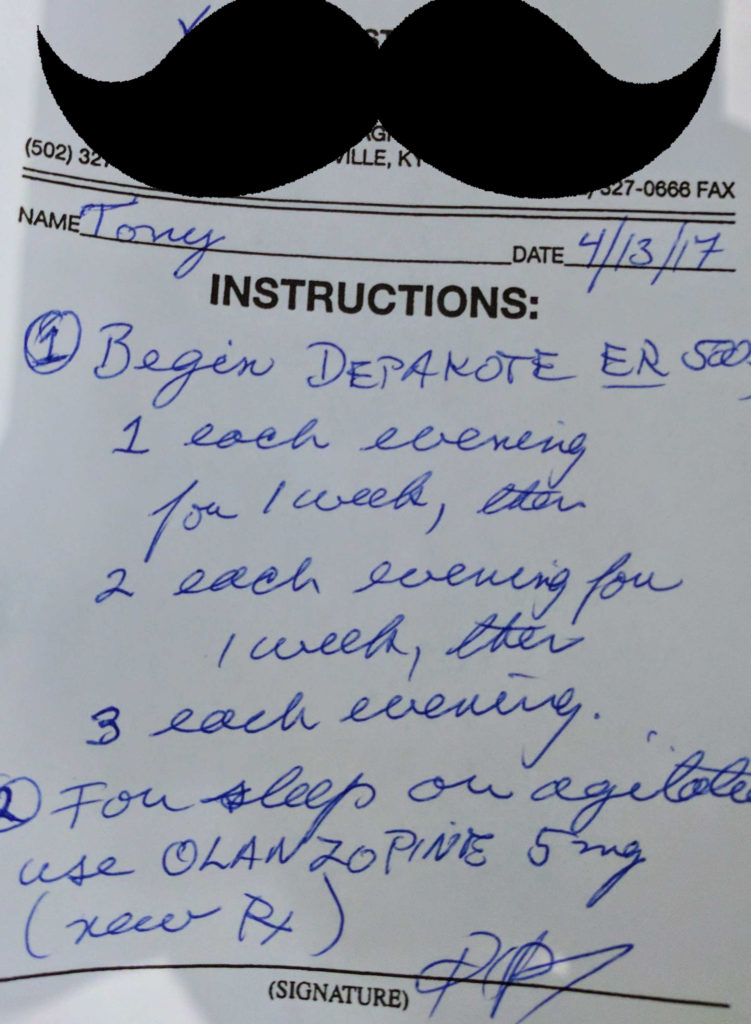 (502) 327
VILLE, KY
327-0666 FAX
NAME Tony DATE 4/13/17
INSTRUCTIONS:
① Begin DEPAKOTE ER 500
1 each evening
for 1 week, then
2 each evening for
1 week, then
3 each evening.
② For sleep or agitatio
use OLANZOPINE 5mg
(new Rx)
(SIGNATURE)